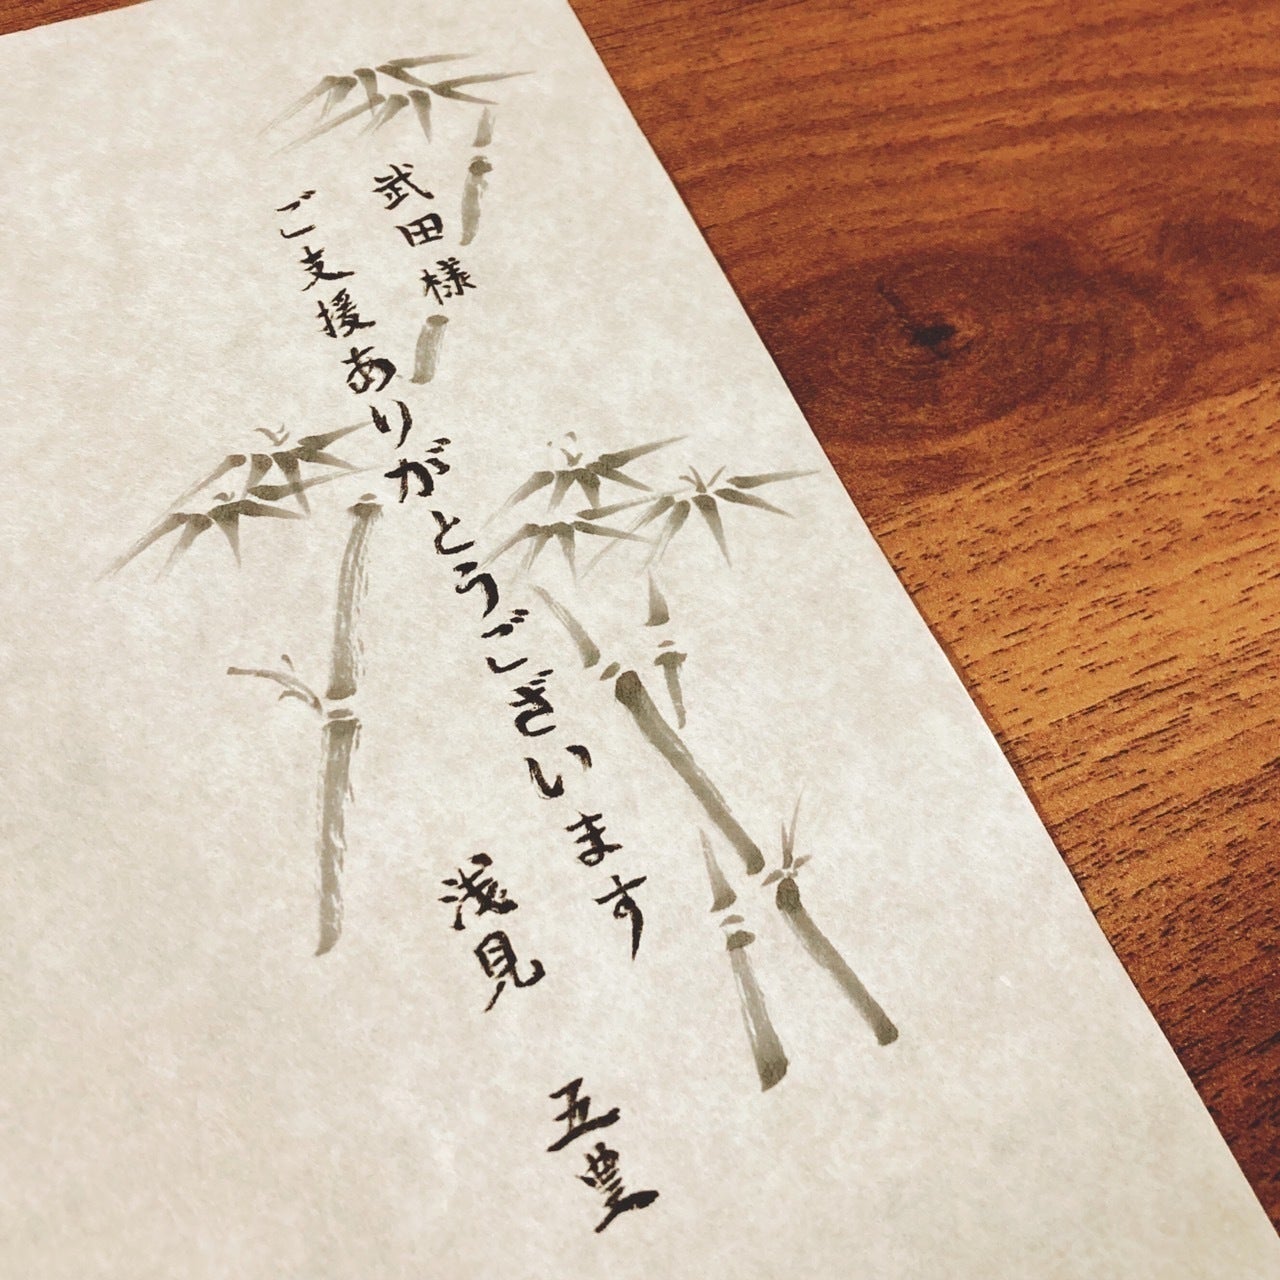 武田様
ご支援ありがとうございます
浅見
五豊